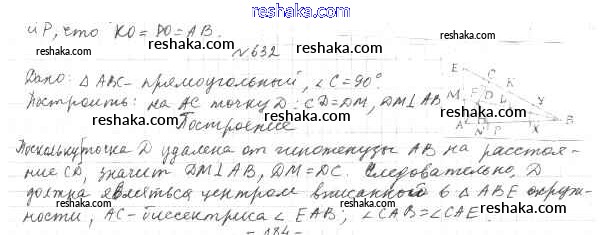 reshak.ru
и P, что KO = PO = AB.
№ 632
Дано: △ ABC - прямоугольный, ∠C = 90°
Построить: на AC точку D: CD = DM, DM ⊥ AB
Построение
Поскольку точка D удалена от гипотенузы AB на расстоя-
ние CD, значит DM ⊥ AB, DM = DC. Следовательно, D
должна являться центром вписанной в △ ABE окруж-
ности, AC - биссектриса ∠ EAB; ∠CAB = ∠CAE.
- 184 -